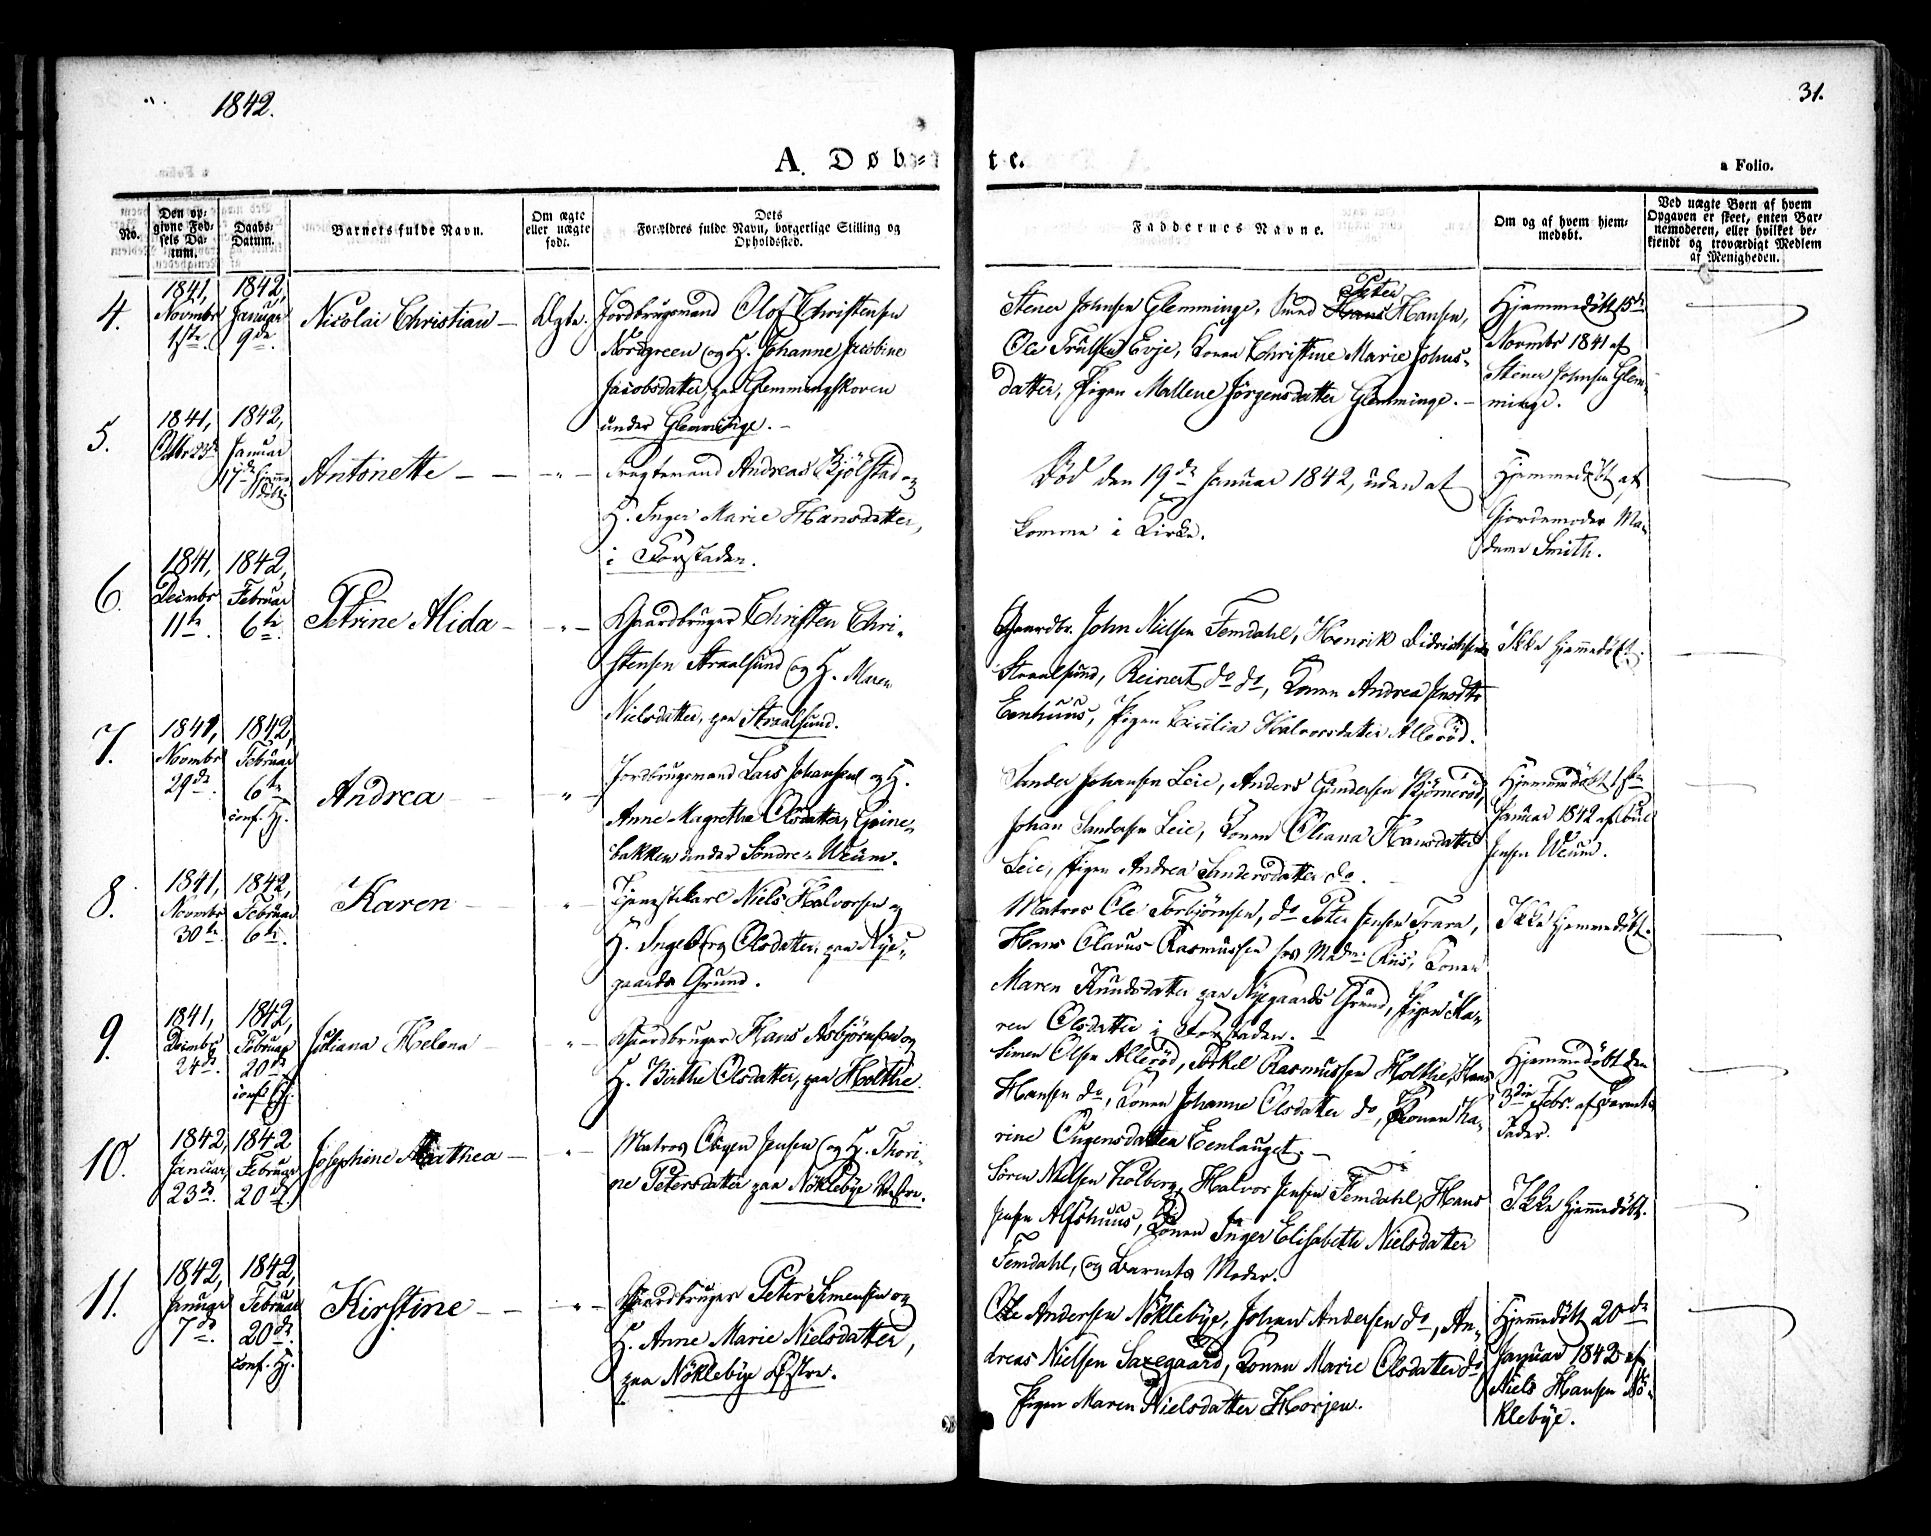 1842.
31.
A. Døb-
te.
a Folio.
No.
Den op-
givne Fød-
sels Da-
tum.
Daabs-
Datum.
Barnets fulde Navn.
Om ægte
eller uægte
født.
Dets
Forældres fulde Navn, borgerlige Stilling og
Opholdssted.
Faddernes Navne.
Om og af hvem hjem-
medøbt.
Ved uægte Børn af hvem
Opgaven er skeet, enten Bar-
nemoderen, eller hvilket be-
kjendt og troværdigt Medlem
af Menigheden.
4.
1841,
Novmbr
1ste.
1842,
Januar
9de.
Nicolai Christian —
Ægte.
Jordbrugsmand Olof Christensen
Nordgreen og H. Johanne Jacobine
Jacobsdatter, paa Glemmingskoven
under Glemminge. —
Stener Johnsen Glemminge, Svend Peter Hansen,
Ole Trulsen Evje, Konen Christine Marie Johns-
datter, Pigen Mallene Jörgensdatter Glemminge. —
Hjemmedöbt 15de
Novmbr 1841 af
Stener Johnsen Glem-
minge.
5.
1841,
Octbr 23de
1842,
Januar
17de hjemme
döbt.
Antonette — —
— " —
Fragtemand Andreas Kjölstad og
H. Inger Marie Hansdatter,
i Forstaden.
Död den 19de Januar 1842, uden at
komme i Kirke.
Hjemmedöbt af
Gjordemoder Ma-
dame Smith.
6.
1841,
Decmbr
11te.
1842,
Februar
6te.
Petrine Alida —
— " —
Gaardbruger Christen Chri-
stensen Straalsund og H. Maren
Nielsdatter, paa Straalsund.
Gaardbr. John Nielsen Femdahl, Henrik Didrichsen
Straalsund, Reinert do do, Konen Andrea
Eenhuus, Pigen Cicilia Halvorsdatter Alleröd.
Ikke hjemmedöbt.
7.
1841,
Novmbr
29de.
1842,
Februar
6te
conf. Hj.
Andrea —
"
Jordbrugsmand Lars Johansen og H.
Anne Magrethe Olsdatter, Grine-
bakken under Söndre Weum.
Sander Johansen Leie, Anders Gundersen Kjömeröd,
Johan Sandersen Leie, Konen Oliana Hansdatter
Leie, Pigen Andrea Sandersdatter do.
Hjemmedöbt 1ste
Januar 1842 af
Jensen Weum.
8.
1841,
Novmbr
30te.
1842,
Februar
6te.
Karen —
"
Tjenestekarl Niels Halvorsen og
H. Ingeborg Olsdatter, paa Nye-
gaards Grund.
Matros Ole Torbjörnsen, do Peter Jensen Trara,
Hans Olavus Rasmussen hos Madme Riis, Konen
Maren Knudsdatter paa Nyegaards Grund, Pigen Ka-
ren Olsdatter i Forstaden. —
Ikke hjemmedöbt.
9.
1841,
Decmbr
24de.
1842,
Februar
20de
conf. Hj.
Juliana Helena —
" —
Gaardbruger Hans Asbjörnsen og
H. Birthe Olsdatter, paa Holthe.
Simen Olsen Alleröd, Torkel Rasmussen Holthe, Hans
Hansen do, Konen Johanne Olsdatter do, Konen Ka-
rine Eugensdatter Eenlauget. —
Hjemmedöbt den
3die Febr. af Barnets
Fader.
10.
1842,
Januar
23de.
1842
Februar
20de
Josephine Mathea —
" —
Matros Eugen Jensen og H. Thori-
ne Petersdatter paa Nöklebye Vestre.
Sören Nielsen Kolberg, Halvor Jensen Femdahl, Hans
Jensen Alfshuus, Konen Inger Elisabeth Nielsdatter
Femdahl, og Barnets Moder.
Ikke hjemmedöbt.
11.
1842,
Januar
7de.
1842,
Februar
20de.
conf. Hj.
Kirstine — —
" —
Gaardbruger Peter Simensen og
H. Anne Marie Nielsdatter,
paa Nöklebye Östre.
Ole Andersen Nöklebye, Johan Andersen do, An-
dreas Nielsen Saxegaard, Konen Marie Olsdatter do,
Pigen Maren Nielsdatter Horjen.
Hjemmedöbt 20de
Januar 1842 af
Niels Hansen Nö-
klebye.